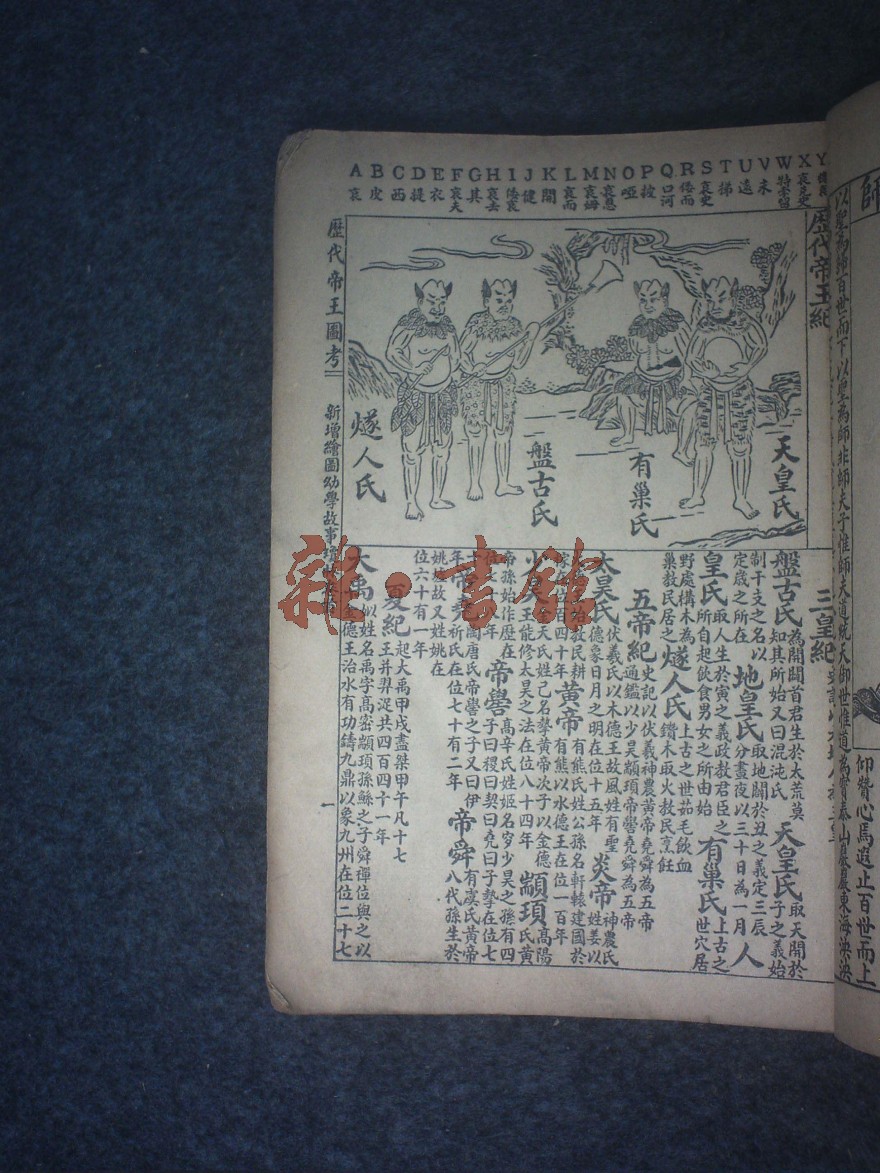 A B C D E F G H I J K L M N O P Q R S T U V W X Y
哀 皮 西 提 衣 哀夫 其 哀去 倭哀 健 開 哀而 哀姆 哀恩 啞 披 口河 倭而 哀史 梯 遙 未
歷代帝王紀
天皇氏
有巢氏
盤古氏
燧人氏
三皇紀
盤古氏為開闢首君生於太荒莫知其所始又曰混沌氏
天皇氏取天開於子之義始制干支之名以定歲之所在
地皇氏取地闢於丑之義定三辰分晝夜以三十日為一月
人皇氏取人生於寅之義政教君臣之所自起飲食男女之所由始
有巢氏上古之世穴居野處構木為巢教民居之
燧人氏上古之世茹毛飲血鑽木取火教民烹飪
五帝紀史記以伏羲神農黃帝堯舜為五帝通鑑以少昊顓頊帝嚳堯舜為五帝
太昊氏伏羲氏以木德王故風姓有聖德象日月之明在位十五年
炎帝神農氏姓姜以
教民耕
位百四十年
黃帝有熊氏姓公孫名軒轅建國於有熊以水德王在位一百年
天氏姓己名摯黃帝次子以金德王能修太昊之法在位八十四年
顓頊高陽氏黃帝孫始作歷在位
帝嚳高辛氏姓姬名夋少昊之孫有四子曰稷曰契曰堯曰摯在位七十
帝堯陶唐氏帝嚳之子又曰伊祈氏在位七十有二年
帝舜有虞氏黃帝八代孫生於姚墟故又姓姚在位六十有一年
夏紀起大禹甲戌盡桀甲午凡十七王并羿浞共四百四十一年
大禹姒姓名禹字高密顓頊孫鯀之子舜禪位與之以
德王治水有功鑄九鼎以象九州在位二十七
歷代帝王圖考
新增繪圖幼學故事瓊
一
師
以聖為師百世而下以聖為師非師夫子惟師夫道統天御世惟道為寶泰山巖巖東海泱泱
仰贊心焉遐止百世而上
雜·書館